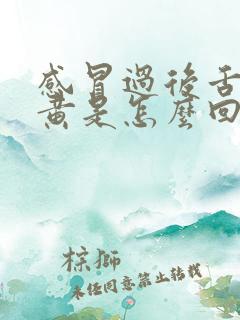 感冒過後舌
黃是怎麼回
棕獅
未任同意禁止转载